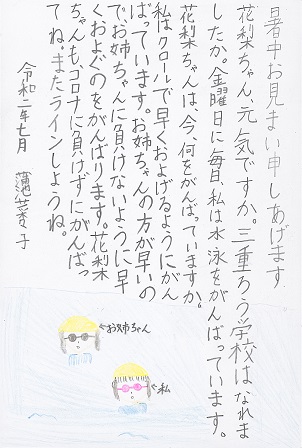 暑中お見まい申しあげます
花梨ちゃん、元気ですか。三重ろう学校はなれま
したか。金曜日に毎日、私は水泳をがんばっています。
花梨ちゃんは、今、何をがんばっていますか。
私はクロールで早くおよげるようにがん
ばっています。お姉ちゃんの方が早いの
で、お姉ちゃんに負けないように早
くおよぐのをがんばります。花梨
ちゃんも、コロナに負けずにがんばっ
てね。またラインしようね。
令和二年七月
←お姉ちゃん
←私